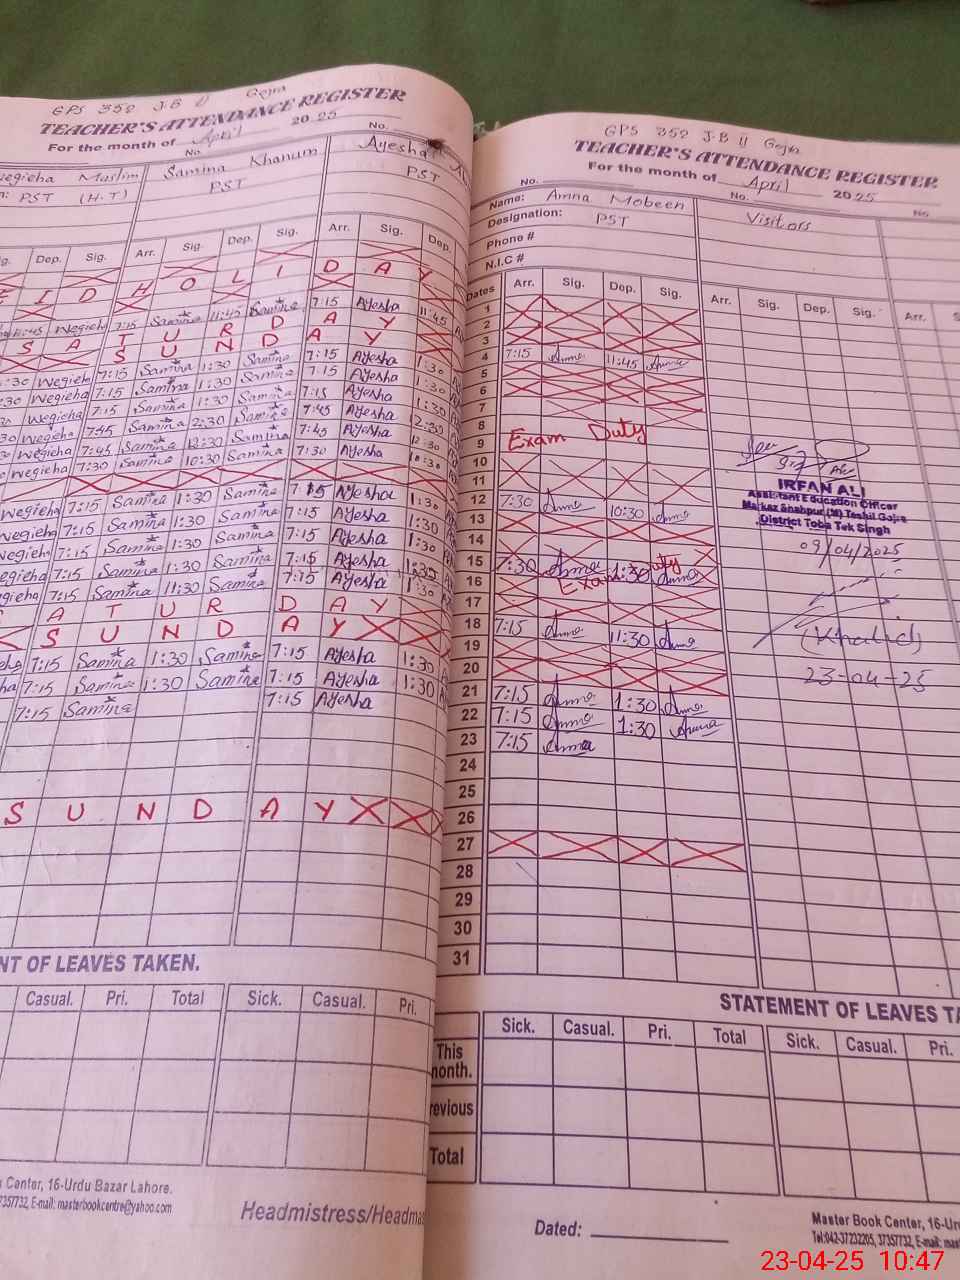 GPS 352 J.B II Gojra
TEACHER'S ATTENDANCE REGISTER
For the month of April 2025 No.
No.
Wegieha Muslim Samina Khanum Ayesha
PST (H.T) PST PST
Sig. Dep. Sig. Arr. Sig. Dep. Sig. Arr. Sig. Dep.
E I D H O L I D A Y
Wegieha 7:15 Samina 11:45 Samina 7:15 Ayesha 11:45
S A T U R D A Y
S U N D A Y
1:30 Wegieha 7:15 Samina 1:30 Samina 7:15 Ayesha 1:30
Wegieha 7:15 Samina 1:30 Samina 7:15 Ayesha 1:30
Wegieha 7:15 Samina 1:30 Samina 7:15 Ayesha 1:30
Wegieha 7:45 Samina 2:30 Samina 7:45 Ayesha 2:30
Wegieha 7:45 Samina 12:30 Samina 7:45 Ayesha 12:30
Wegieha 7:30 Samina 10:30 Samina 7:30 Ayesha 10:30
Wegieha 7:15 Samina 1:30 Samina 7:15 Ayesha 1:30
Wegieha 7:15 Samina 1:30 Samina 7:15 Ayesha 1:30
Wegieha 7:15 Samina 1:30 Samina 7:15 Ayesha 1:30
Wegieha 7:15 Samina 1:30 Samina 7:15 Ayesha 1:30
7:15 Samina 11:30 Samina 7:15 Ayesha
S A T U R D A Y
S U N D A Y
7:15 Samina 1:30 Samina 7:15 Ayesha 1:30
7:15 Samina 1:30 Samina 7:15 Ayesha 1:30
7:15 Samina 7:15 Ayesha
S U N D A Y
OF LEAVES TAKEN.
Casual. Pri. Total Sick. Casual. Pri.
Center, 16-Urdu Bazar Lahore.
37357732, E-mail: masterbookcentre@yahoo.com
GPS 352 J.B II Gojra
TEACHER'S ATTENDANCE REGISTER
For the month of April 2025
No. No. No
Name: Amna Mobeen Visitors
Designation: PST
Phone #
N.I.C #
Dates Arr. Sig. Dep. Sig. Arr. Sig. Dep. Sig. Arr.
1
2
3
4 7:15 Amna 11:45 Amna
5
6
7
8 Exam Duty
9
10
11
12 7:30 Amna 10:30 Amna
13
14
15 7:30 Amna 1:30 Amna
16 Exam Duty
17
18 7:15 Amna 11:30 Amna
19
20
21 7:15 Amna 1:30 Amna
22 7:15 Amna 1:30 Amna
23 7:15 Amna
24
25
26
27
28
29
30
31
IRFAN ALI
Assistant Education Officer
Markaz Anabpur (M) Teshil Gojra
District Toba Tek Singh
09/04/2025
(Khalid)
23-04-25
STATEMENT OF LEAVES
Sick. Casual. Pri. Total Sick. Casual. Pri.
This month.
Total
Dated:
Master Book Center,
Tel:042-37232205, 37357732, E-mail:
23-04-25 10:47